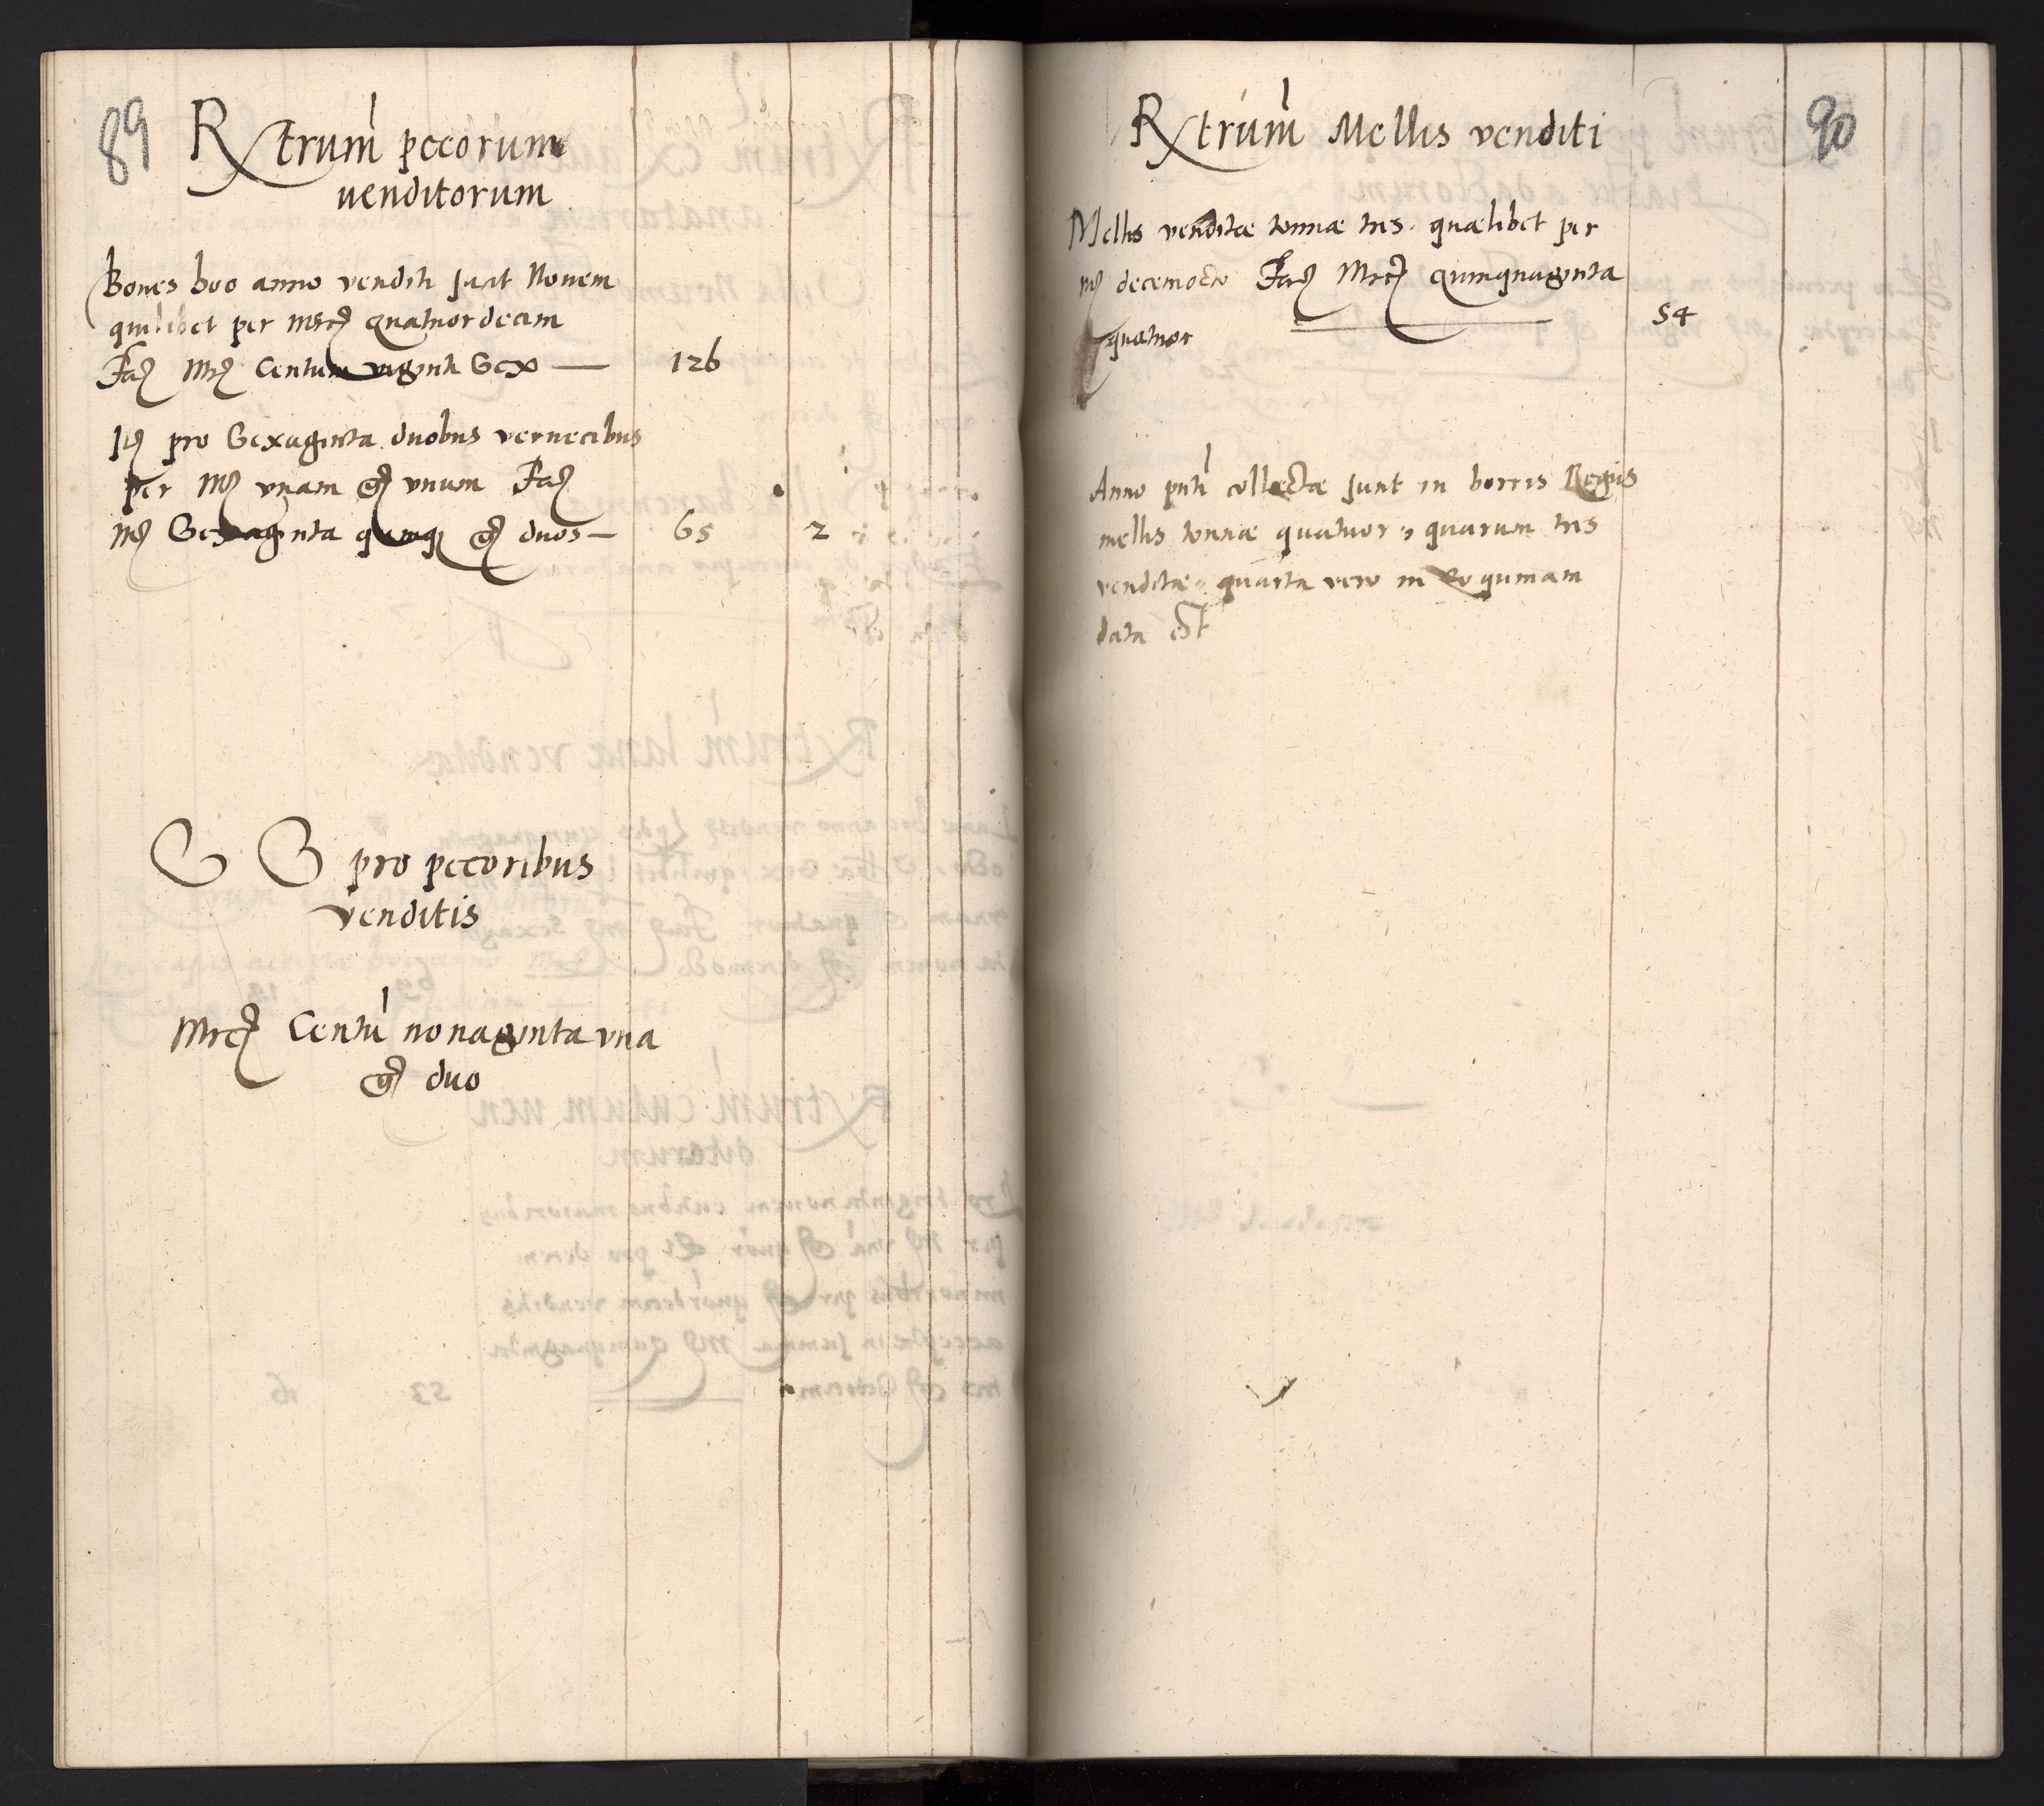 89
Rxtrum pecorum
uenditorum
Boues hoc anno venditi sunt Nouem
quilibet per mrc quatuordecim
Fac Mrc Centum viginti Sex — 126
It pro Sexaginta duobus veruecibus
per M vnam gr vnum Fac
M Sexaginta quinq gr duos — 65 2
S S pro pecoribus
venditis
Mrc Centu nonaginta vna
gr duo
90
Rxtrum Mellis venditi
Mellis venditæ tonnæ tres quælibet per
M decemocto Fac Mrc quinquaginta
quatuor 54
Anno pnti collectæ sunt in horreis Regiis
mellis tonnæ quatuor, quarum tres
venditæ, quarta vero in coquinam
data est